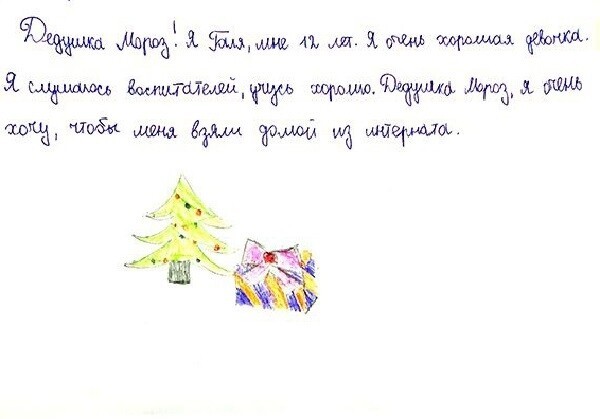 Дедушка Мороз! Я Галя, мне 12 лет. Я очень хорошая девочка.
Я слушаюсь воспитателей, учусь хорошо. Дедушка Мороз, я очень
хочу, чтобы меня взяли домой из интерната.